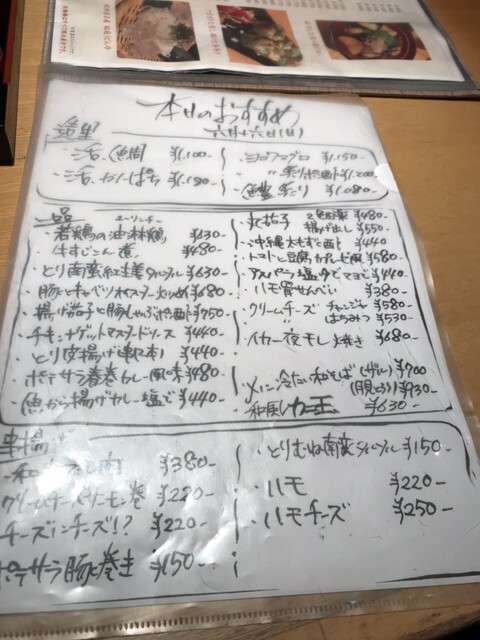 本日のおすすめ
六月十六日(日)
造里
・活、鯛 ¥1,100-
・活、かんぱち ¥1,180-
・ヨコワマグロ ¥1,150-
¥1,200
¥1,080-
一品
ユーリンチー
・若鶏の油淋鶏 ¥630-
・牛すじこん煮 ¥480-
・とり南蛮紅生姜タルタル ¥630-
・豚とキャベツのマスタード炒め ¥680
・揚げ茄子と豚しゃぶポン酢 ¥750
・チキンナゲットマスタードソース ¥440-
・とり皮揚げ(串2本) ¥440-
・ポテサラ春巻カレー風味 ¥480
・魚から揚げカレー塩で ¥440-
・丸茄子 ¥480-
揚げ出し ¥550
・沖縄太もずく酢 ¥440
・トマトと豆腐 ¥580
・アスパラ塩ゆでマヨで ¥440
・ハモ骨せんべい ¥380
・クリームチーズ チャンジャ ¥580
〃 はちみつ ¥530
・イカ一夜干し焼き ¥680
・〆に冷たい和そば (ザル) ¥700
¥930
・和風カレー ¥630-
串揚げ
肉 ¥380-
クリームチーズサーモン巻 ¥220-
チーズinチーズ!? ¥220-
ポテサラ豚巻き ¥150-
・とりむね南蛮タルタル ¥150-
・ハモ ¥220-
・ハモチーズ ¥250-